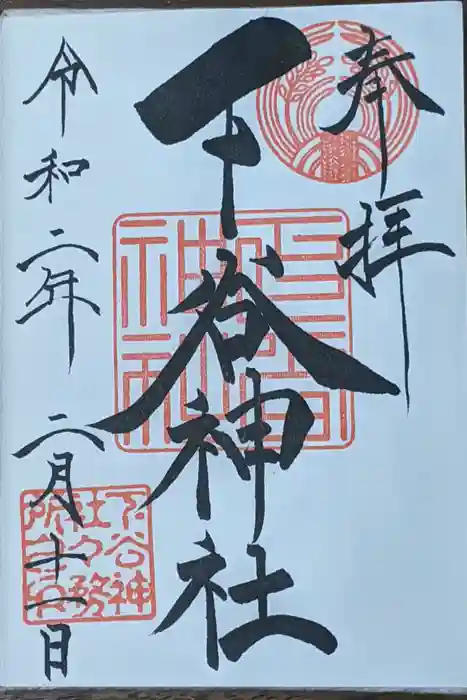 奉拝
下谷神社
令和二年二月十一日
下谷神社社務所之印